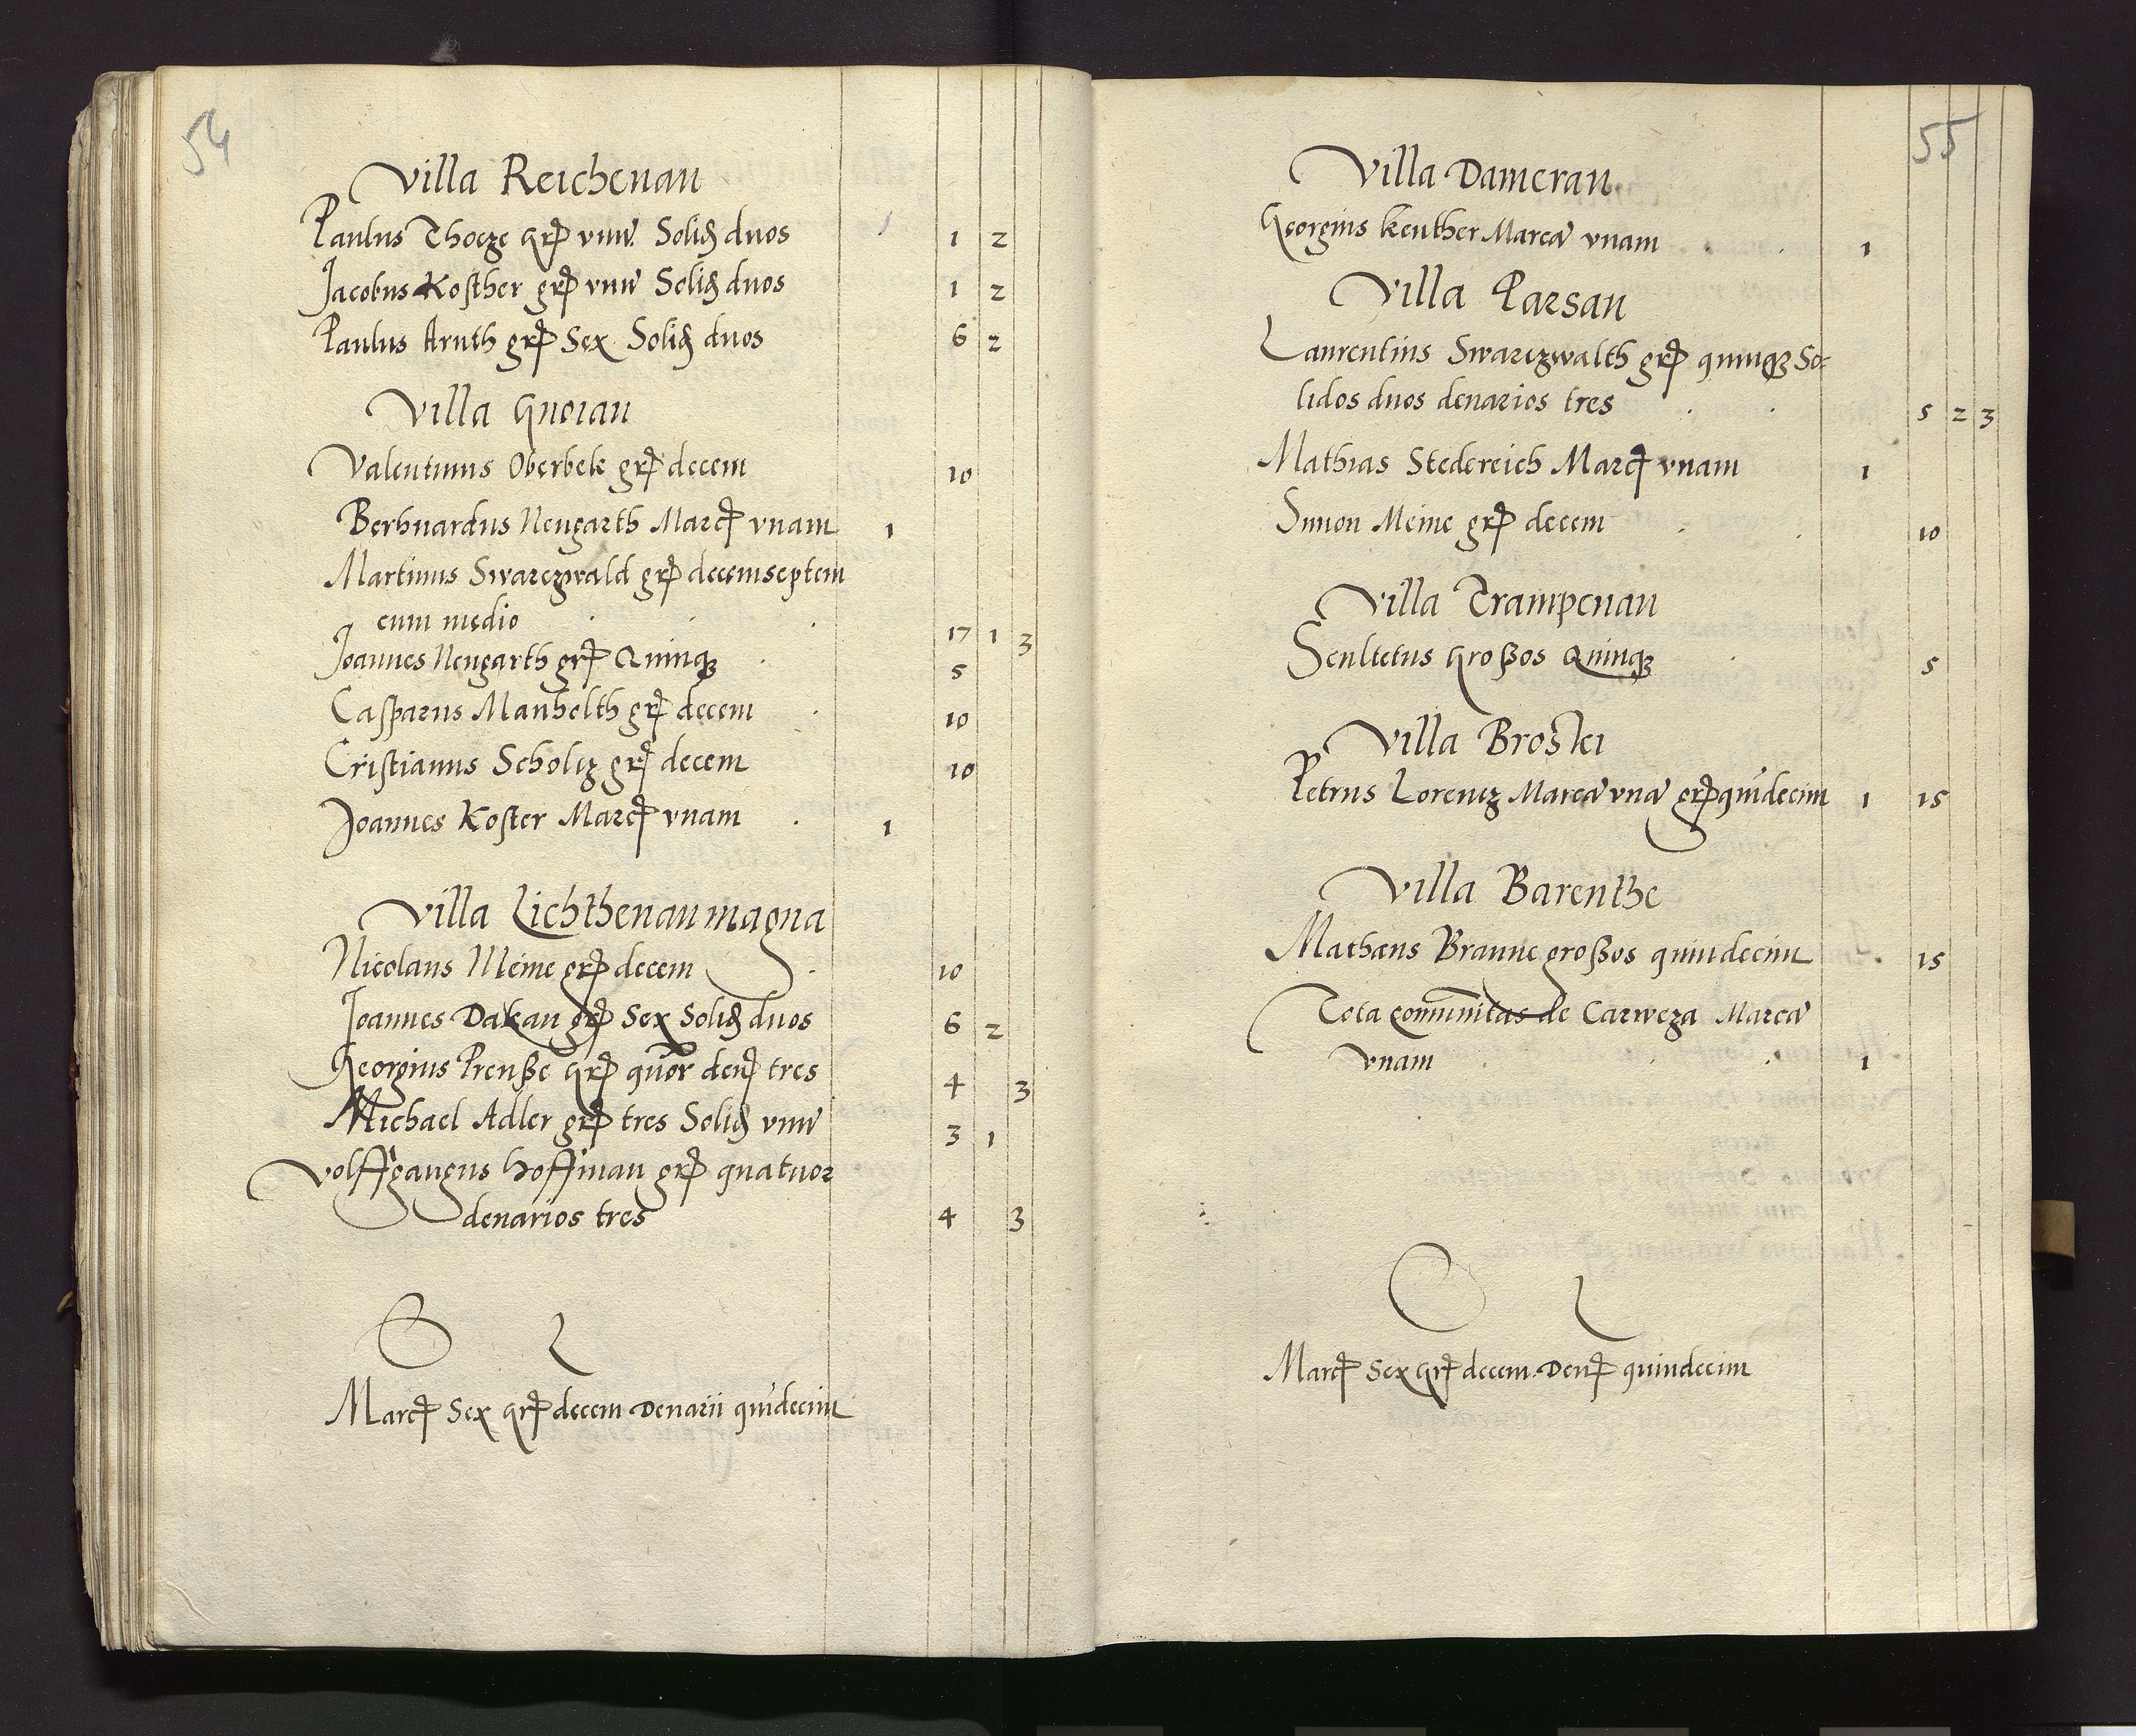 54
Villa Reichenau
Paulus Thocze gr. vnū Solid. duos 1 2
Jacobus Kosther gr. vnū Solid. duos 1 2
Paulus Arnth gr. Sex Solid. duos 6 2
Villa Gnoiau
Valentinus Oberbek gr. decem 10
Berhnardus Neugarth Marc. vnam 1
Martinus Swarczwald gr. decemseptem
cum medio 17 1 3
Joannes Neugarth gr. Quinq3 5
Casparus Manhelth gr. decem 10
Cristianus Scholcz gr. decem 10
Joannes Koster Marc. vnam 1
Villa Lichthenau magna
Nicolaus Meine gr. decem 10
Joannes Dakau gr. Sex Solid. duos 6 2
Georgius Preuße gr. quor den. tres 4 3
Michael Adler gr. tres Solid. vnū 3 1
Volffgangus Hoffman gr. quatuor
denarios tres 4 3
Marc. Sex gr. decem Denarii quīdecim
55
Villa Damerau
Georgius Keuther Marcā vnam 1
Villa Parsau
Laurentius Swarczwalth gr. quinq3 So-
lidos duos denarios tres 5 2 3
Mathias Stedereich Marc. vnam 1
Simon Meine gr. decem 10
Villa Trampenau
Scultetus Großos Quinq3 5
Villa Broski
Petrus Lorencz Marcā vnā gr. quīdecim 1 15
Villa Barenthe
Matheus Braune großos quindecim 15
Tota com̄unitas de Carweza Marcā
vnam 1
Marc. Sex gr. decem Den. quindecim